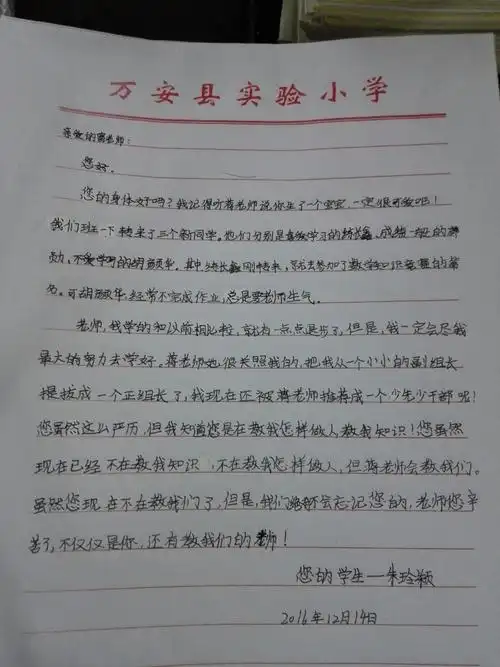 万安县实验小学
亲爱的 老师：
您好。
您的身体好吗？我记得听蒋老师说你生了一个宝宝，一定很可爱吧！
我们班一下转来了三个新同学。他们分别是喜欢学习的 ，成绩一般的
，不爱学习的胡 华。其中 刚转来，就去参加了数学知识竞赛的
名。可胡 华，经常不完成作业，总是惹老师生气。
老师，我学的和以前相比较，就有一点点退步了，但是，我一定会尽我
最大的努力去学好。蒋老师她很关照我的，把我从一个小小的副组长
提拔成一个正组长了，我现在还被蒋老师推荐成一个少先少干部呢！
您虽然这么严历，但我知道您是在教我怎样做人教我知识！您虽然
现在已经不在教我知识，不在教我怎样做人，但蒋老师会教我们。
虽然您现在不在教我们了，但是，我们绝不会忘记您的，老师您辛
苦了，不仅仅是你，还有教我们的老师！
您的学生—朱玲颖
2016年12月14日